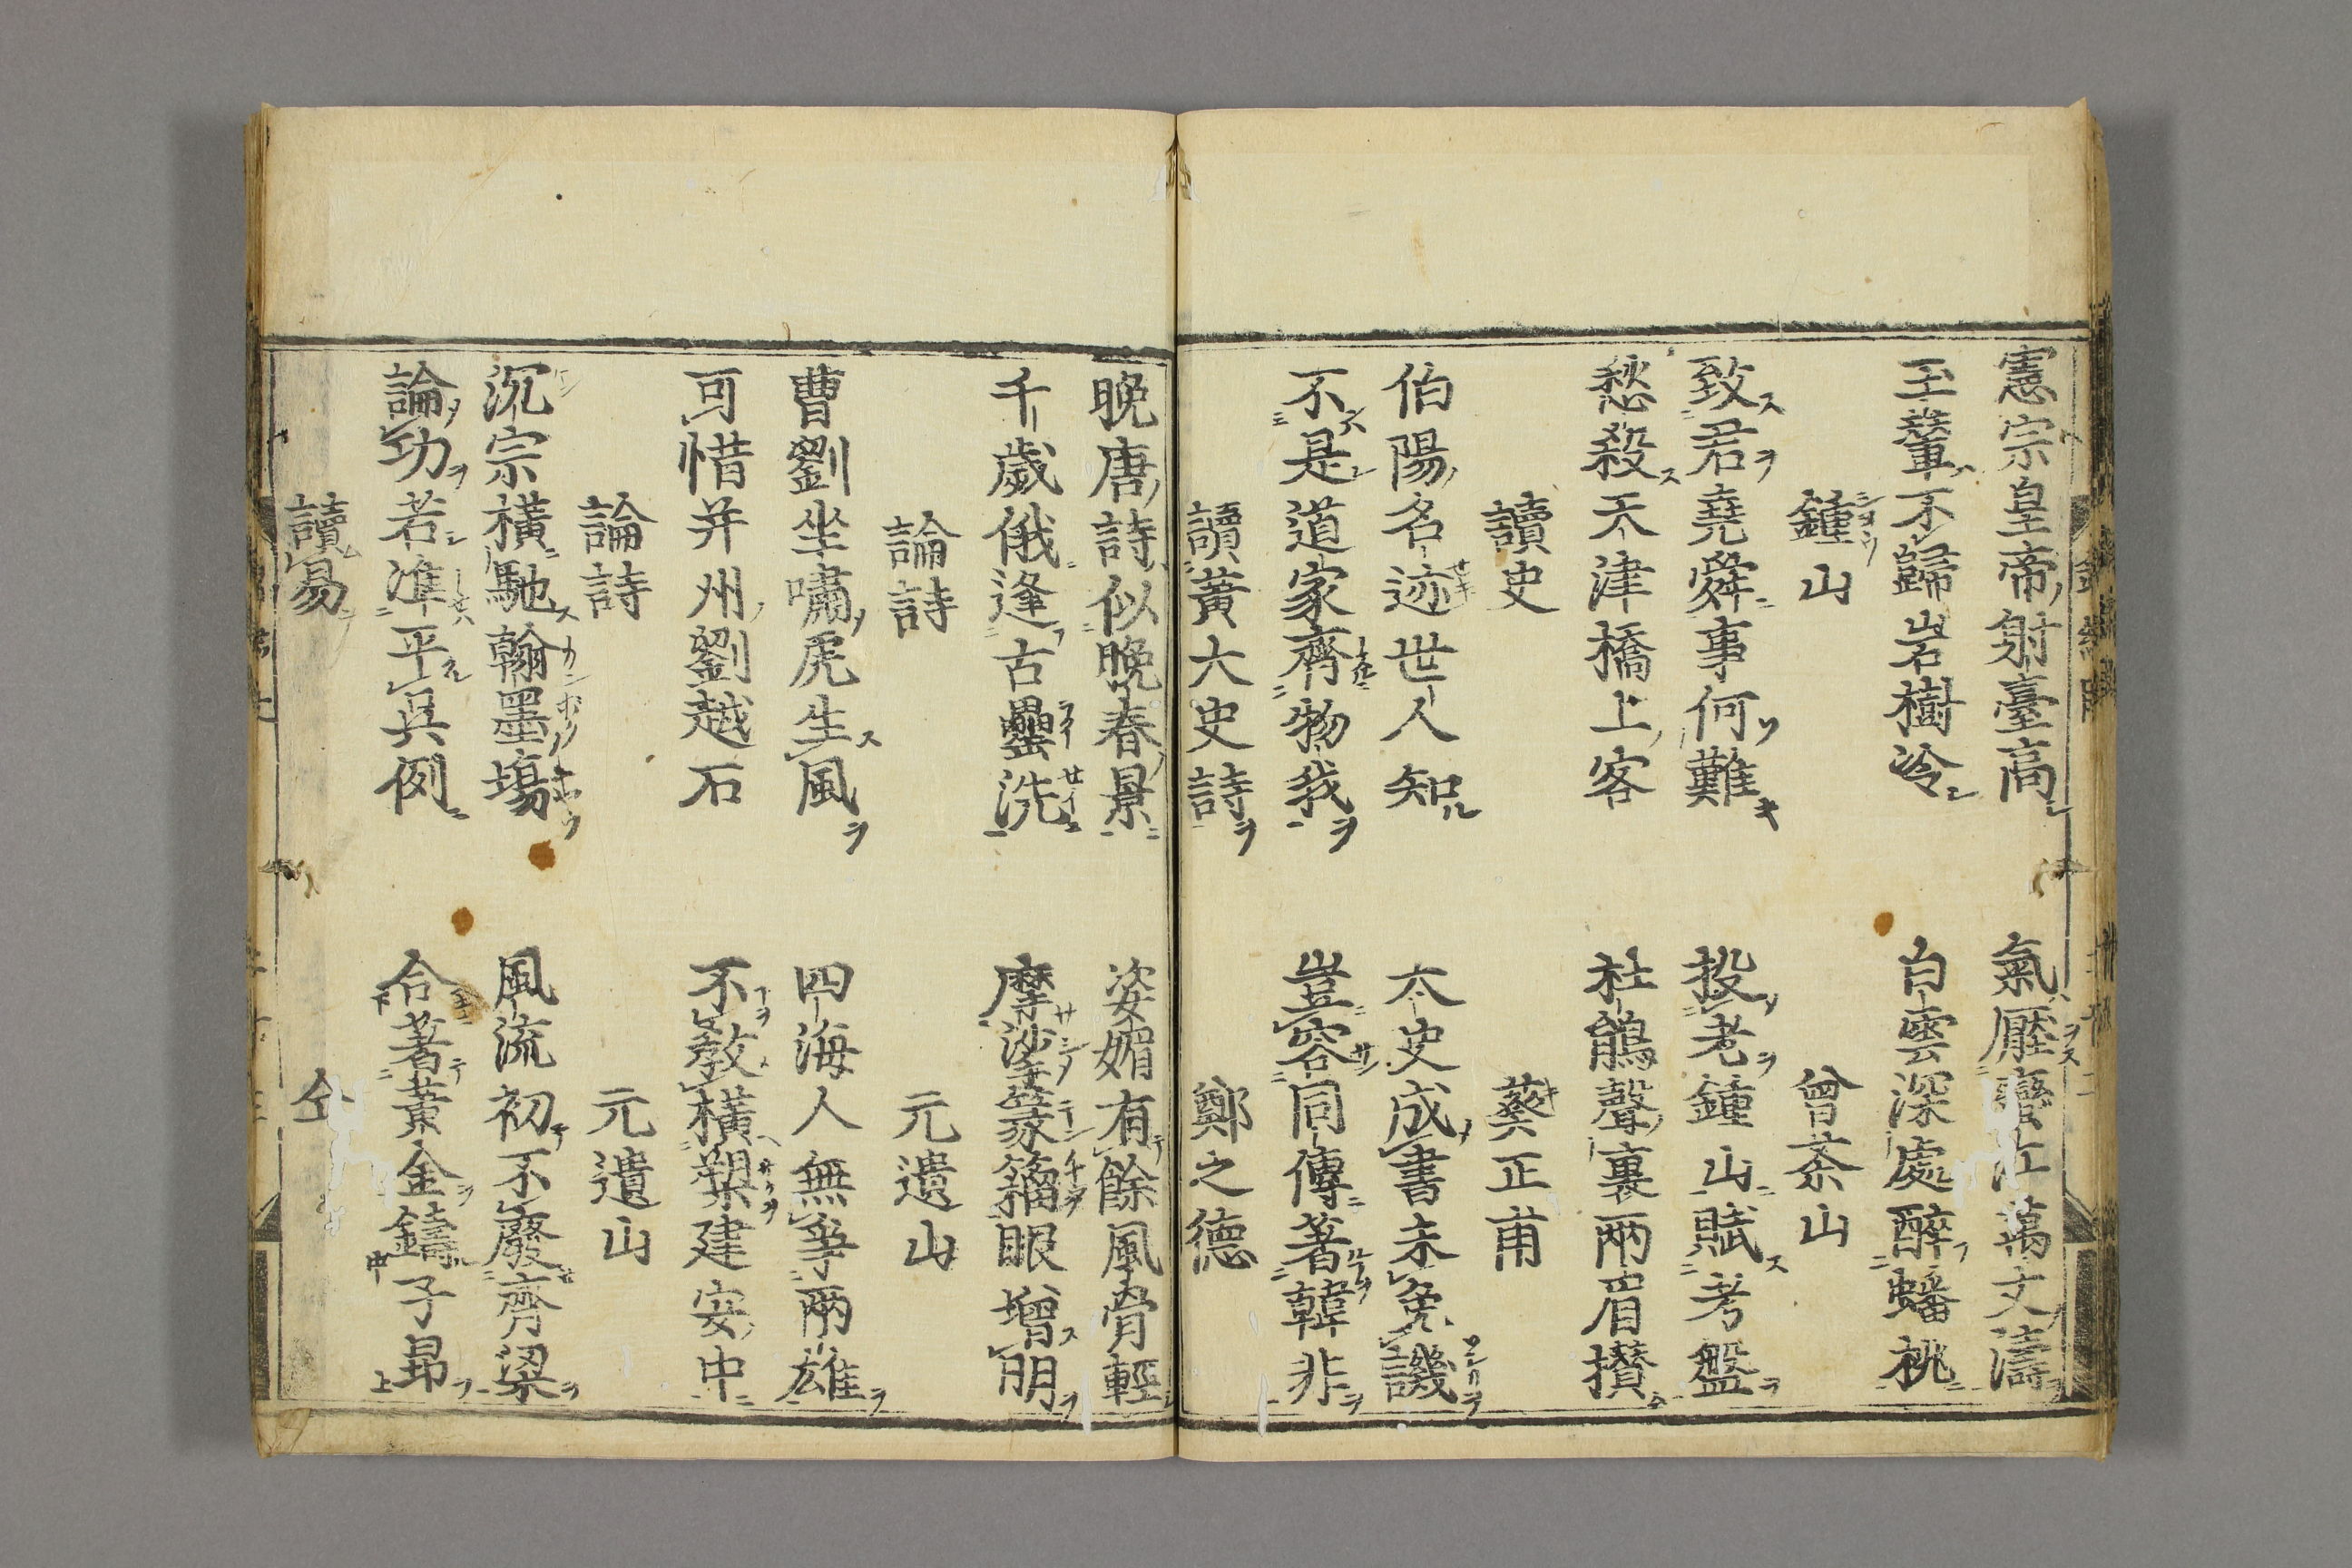 憲宗皇帝射臺高 氣壓 江萬丈濤
玉輦不歸岩樹冷 白雲深處醉蟠桃
鍾山 曾茶山
致君堯舜事何難 投老鍾山賦考盤
愁殺天津橋上客 杜鵑聲裏兩眉攅
讀史 蔡正甫
伯陽名迹世人知 太史成書未免譏
不是道家齊物我 豈容同傳著韓非
讀黃大史詩 鄭之德
晚唐詩似晚春景 姿媚有餘風骨輕
千歲俄逢古罍洗 摩挲篆籕眼增明
論詩 元遺山
曹劉坐嘯虎生風 四海人無爭兩雄
可惜并州劉越石 不敎橫槊建安中
論詩 元遺山
沉宗橫馳翰墨場 風流初不廢齊梁
論功若準平吳例 合著黃金鑄子昻
讀易 仝